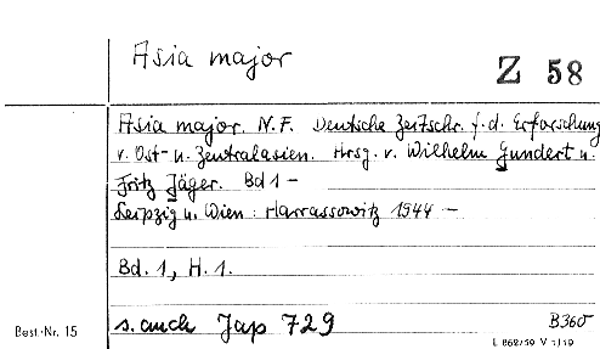 Asia major
Z 58
Asia major. N.F. Deutsche Zeitschr. f. d. Erforschung
v. Ost- u. Zentralasien. Hrsg. v. Wilhelm Gundert u.
Fritz Jäger. Bd 1 –
Leipzig u. Wien : Harrassowitz 1944 –
Bd. 1, H. 1.
s. auch Jap 729
B360
Best.-Nr. 15